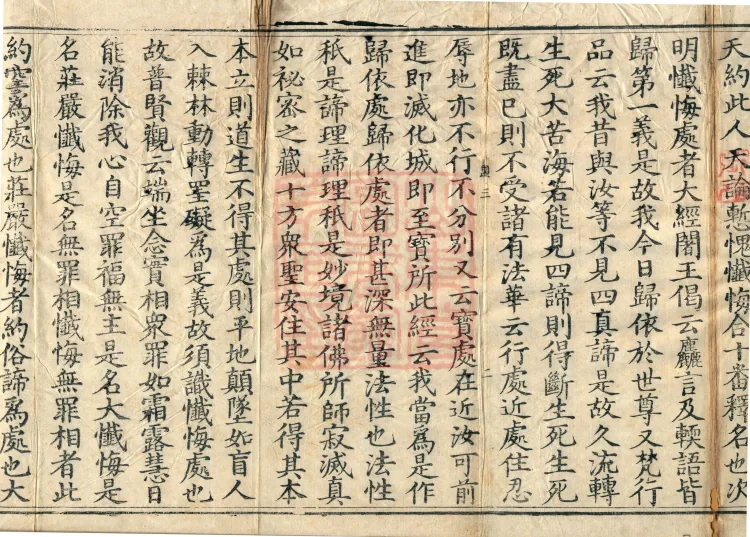 天約此人天論慙愧懺悔合十番釋名也次
明懺悔處者大經闍王偈云麤言及輭語皆
歸第一義是故我今日歸依於世尊又梵行
品云我昔與汝等不見四真諦是故久流轉
生死大苦海若能見四諦則得斷生死生死
既盡已則不受諸有法華云行處近處住忍
辱地亦不行不分別又云寶處在近汝可前
進即滅化城即至寶所此經云我當為是作
歸依處歸依處者即甚深無量法性也法性
秖是諦理諦理秖是妙境諸佛所師寂滅真
如祕密之藏十方眾聖安住其中若得其本
本立則道生不得其處則平地顛墜如盲人
入棘林動轉罣礙為是義故須識懺悔處也
故普賢觀云端坐念實相眾罪如霜露慧日
能消除我心自空罪福無主是名大懺悔是
名莊嚴懺悔是名無罪相懺悔無罪相者此
約空為處也莊嚴懺悔者約俗諦為處也大